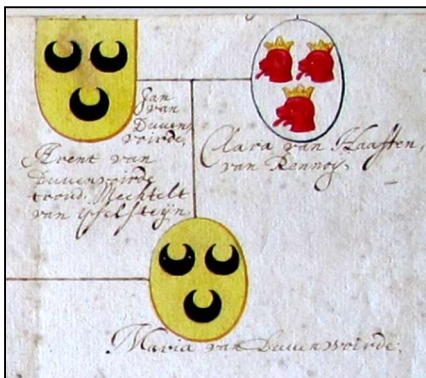 Jan
van
Duuen
voirde,
Arent van
Duuenvoirde
troud. Mechtelt
van ysselsteÿn
Clara van Haaften,
van Rennoÿ.
Maria van Duuenvoirde.